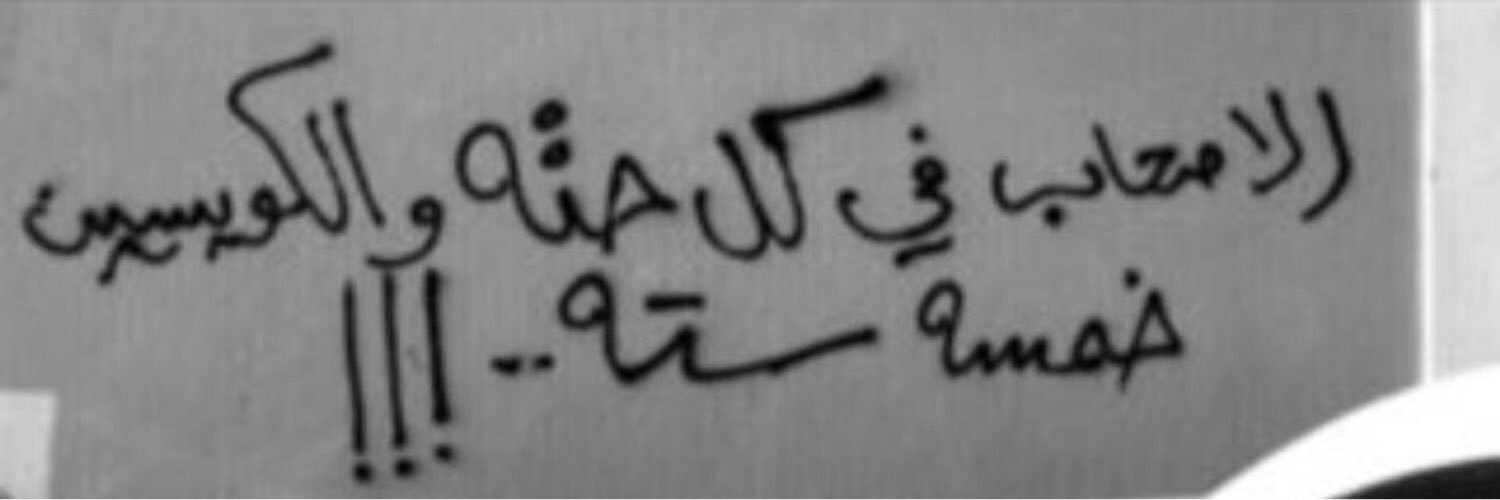 الاصحاب في كل حته والكويسين
خمسه سته..!!!